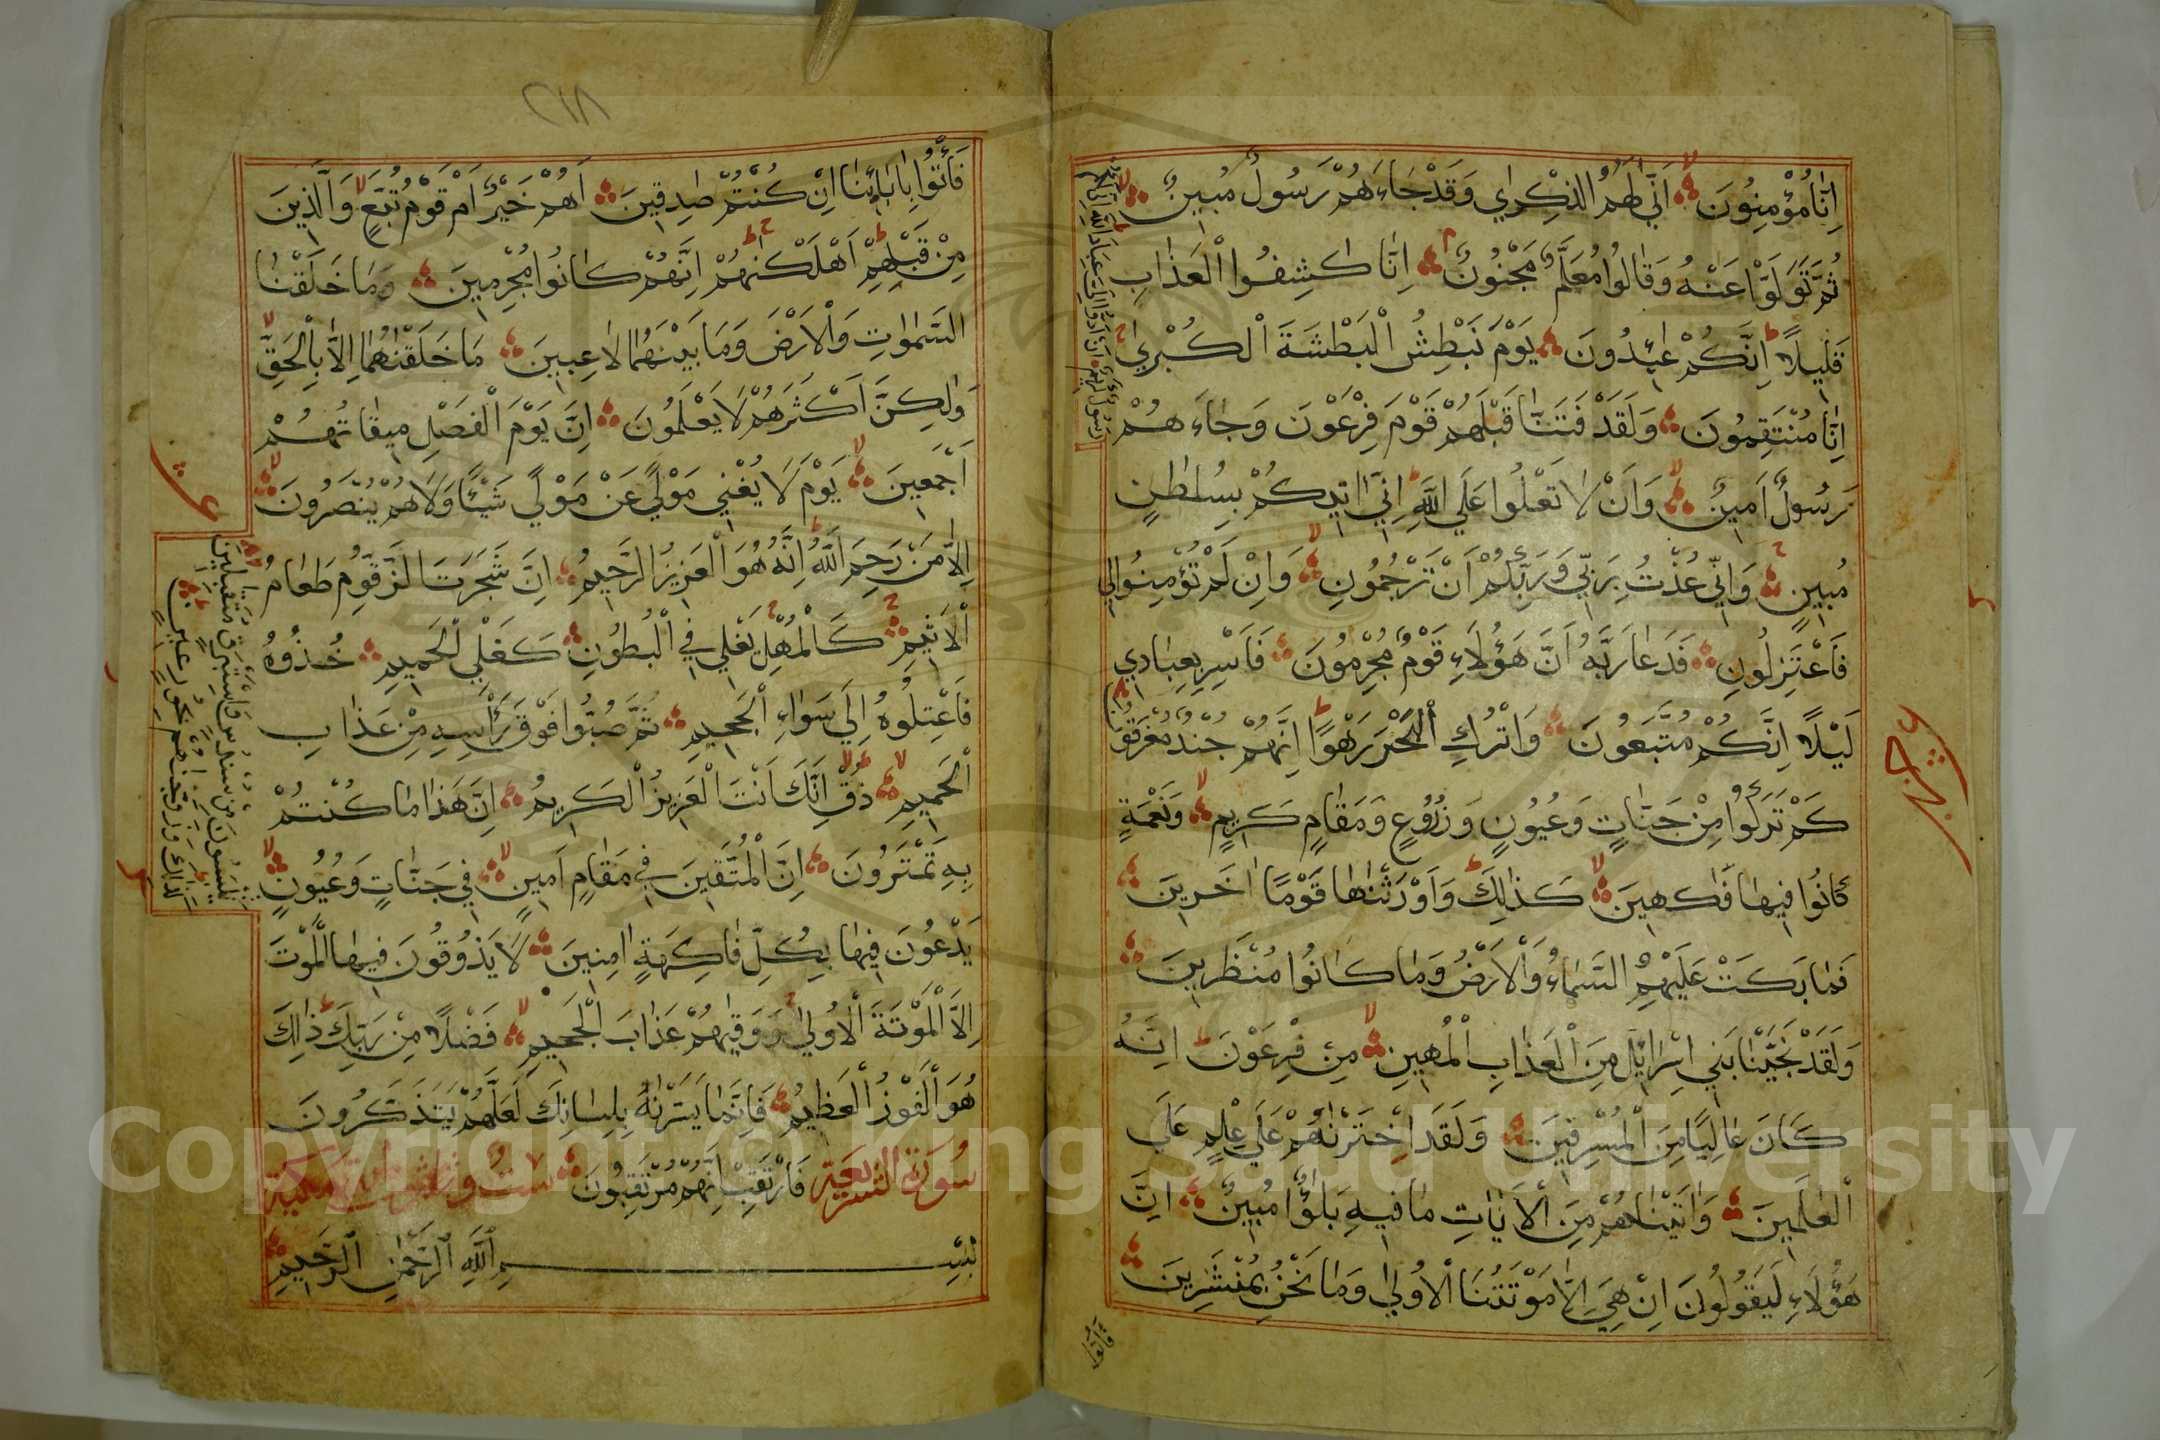 اِنَّا مُؤْمِنُونَ اَنّٰي لَهُمُ الذِّكْرٰي وَقَدْ جَاءَهُمْ رَسُولٌ مُبِينٌ
ثُمَّ تَوَلَّوْا عَنْهُ وَقَالُوا مُعَلَّمٌ مَجْنُونٌ اِنَّا كَاشِفُوا الْعَذَابِ
قَلِيلًا اِنَّكُمْ عَائِدُونَ يَوْمَ نَبْطِشُ الْبَطْشَةَ الْكُبْرٰي
اِنَّا مُنْتَقِمُونَ وَلَقَدْ فَتَنَّا قَبْلَهُمْ قَوْمَ فِرْعَوْنَ وَجَاءَهُمْ
رَسُولٌ كَرِيمٌ اَنْ اَدُّوا اِلَيَّ عِبَادَ اللّٰهِ اِنِّي لَكُمْ
رَسُولٌ اَمِينٌ وَاَنْ لَا تَعْلُوا عَلَي اللّٰهِ اِنِّي اٰتِيكُمْ بِسُلْطٰنٍ
مُبِينٍ وَاِنِّي عُذْتُ بِرَبِّي وَرَبِّكُمْ اَنْ تَرْجُمُونِ وَاِنْ لَمْ تُؤْمِنُوا لِي
فَاعْتَزِلُونِ فَدَعَا رَبَّهُ اَنَّ هَؤُلَاءِ قَوْمٌ مُجْرِمُونَ فَاَسْرِ بِعِبَادِي
لَيْلًا اِنَّكُمْ مُتَّبَعُونَ وَاتْرُكِ الْبَحْرَ رَهْوًا اِنَّهُمْ جُنْدٌ مُغْرَقُونَ
كَمْ تَرَكُوا مِنْ جَنَّاتٍ وَعُيُونٍ وَزُرُوعٍ وَمَقَامٍ كَرِيمٍ وَنَعْمَةٍ
كَانُوا فِيهَا فَاكِهِينَ كَذٰلِكَ وَاَوْرَثْنَاهَا قَوْمًا اٰخَرِينَ
فَمَا بَكَتْ عَلَيْهِمُ السَّمَاءُ وَالْاَرْضُ وَمَا كَانُوا مُنْظَرِينَ
وَلَقَدْ نَجَّيْنَا بَنِي اِسْرَائِيلَ مِنَ الْعَذَابِ الْمُهِينِ مِنْ فِرْعَوْنَ اِنَّهُ
كَانَ عَالِيًا مِنَ الْمُسْرِفِينَ وَلَقَدِ اخْتَرْنَاهُمْ عَلَي عِلْمٍ عَلَي
الْعَالَمِينَ وَاٰتَيْنَاهُمْ مِنَ الْاٰيَاتِ مَا فِيهِ بَلٰؤٌا مُبِينٌ اِنَّ
هَؤُلَاءِ لَيَقُولُونَ اِنْ هِيَ اِلَّا مَوْتَتُنَا الْاُولٰي وَمَا نَحْنُ بِمُنْشَرِينَ
فَأْتُوا
فَأْتُوا بِاٰبَائِنَا اِنْ كُنْتُمْ صَادِقِينَ اَهُمْ خَيْرٌ اَمْ قَوْمُ تُبَّعٍ وَالَّذِينَ
مِنْ قَبْلِهِمْ اَهْلَكْنٰهُمْ اِنَّهُمْ كَانُوا مُجْرِمِينَ وَمَا خَلَقْنَا
السَّمٰوَاتِ وَالْاَرْضَ وَمَا بَيْنَهُمَا لَاعِبِينَ مَا خَلَقْنٰهُمَا اِلَّا بِالْحَقِّ
وَلٰكِنَّ اَكْثَرَهُمْ لَا يَعْلَمُونَ اِنَّ يَوْمَ الْفَصْلِ مِيقَاتُهُمْ
اَجْمَعِينَ يَوْمَ لَا يُغْنِي مَوْلًي عَنْ مَوْلًي شَيْئًا وَلَا هُمْ يُنْصَرُونَ
اِلَّا مَنْ رَحِمَ اللّٰهُ اِنَّهُ هُوَ الْعَزِيزُ الرَّحِيمُ اِنَّ شَجَرَتَ الزَّقُّومِ طَعَامُ
الْاَثِيمِ كَالْمُهْلِ يَغْلِي فِي الْبُطُونِ كَغَلْيِ الْحَمِيمِ خُذُوهُ
فَاعْتِلُوهُ اِلَي سَوَاءِ الْجَحِيمِ ثُمَّ صُبُّوا فَوْقَ رَأْسِهِ مِنْ عَذَابِ
الْحَمِيمِ ذُقْ اِنَّكَ اَنْتَ الْعَزِيزُ الْكَرِيمُ اِنَّ هَذَا مَا كُنْتُمْ
بِهِ تَمْتَرُونَ اِنَّ الْمُتَّقِينَ فِي مَقَامٍ اَمِينٍ فِي جَنَّاتٍ وَعُيُونٍ
يَلْبَسُونَ مِنْ سُنْدُسٍ وَاِسْتَبْرَقٍ مُتَقَابِلِينَ
كَذٰلِكَ وَزَوَّجْنٰهُمْ بِحُورٍ عِينٍ
يَدْعُونَ فِيهَا بِكُلِّ فَاكِهَةٍ اٰمِنِينَ لَا يَذُوقُونَ فِيهَا الْمَوْتَ
اِلَّا الْمَوْتَةَ الْاُولٰي وَوَقٰيهُمْ عَذَابَ الْجَحِيمِ فَضْلًا مِنْ رَبِّكَ ذٰلِكَ
هُوَ الْفَوْزُ الْعَظِيمُ فَاِنَّمَا يَسَّرْنٰهُ بِلِسَانِكَ لَعَلَّهُمْ يَتَذَكَّرُونَ
سورة الشريعة فَارْتَقِبْ اِنَّهُمْ مُرْتَقِبُونَ ست وثلثون مكية
بِسْمِ اللّٰهِ الرَّحْمٰنِ الرَّحِيمِ
Copyright © King Saud University